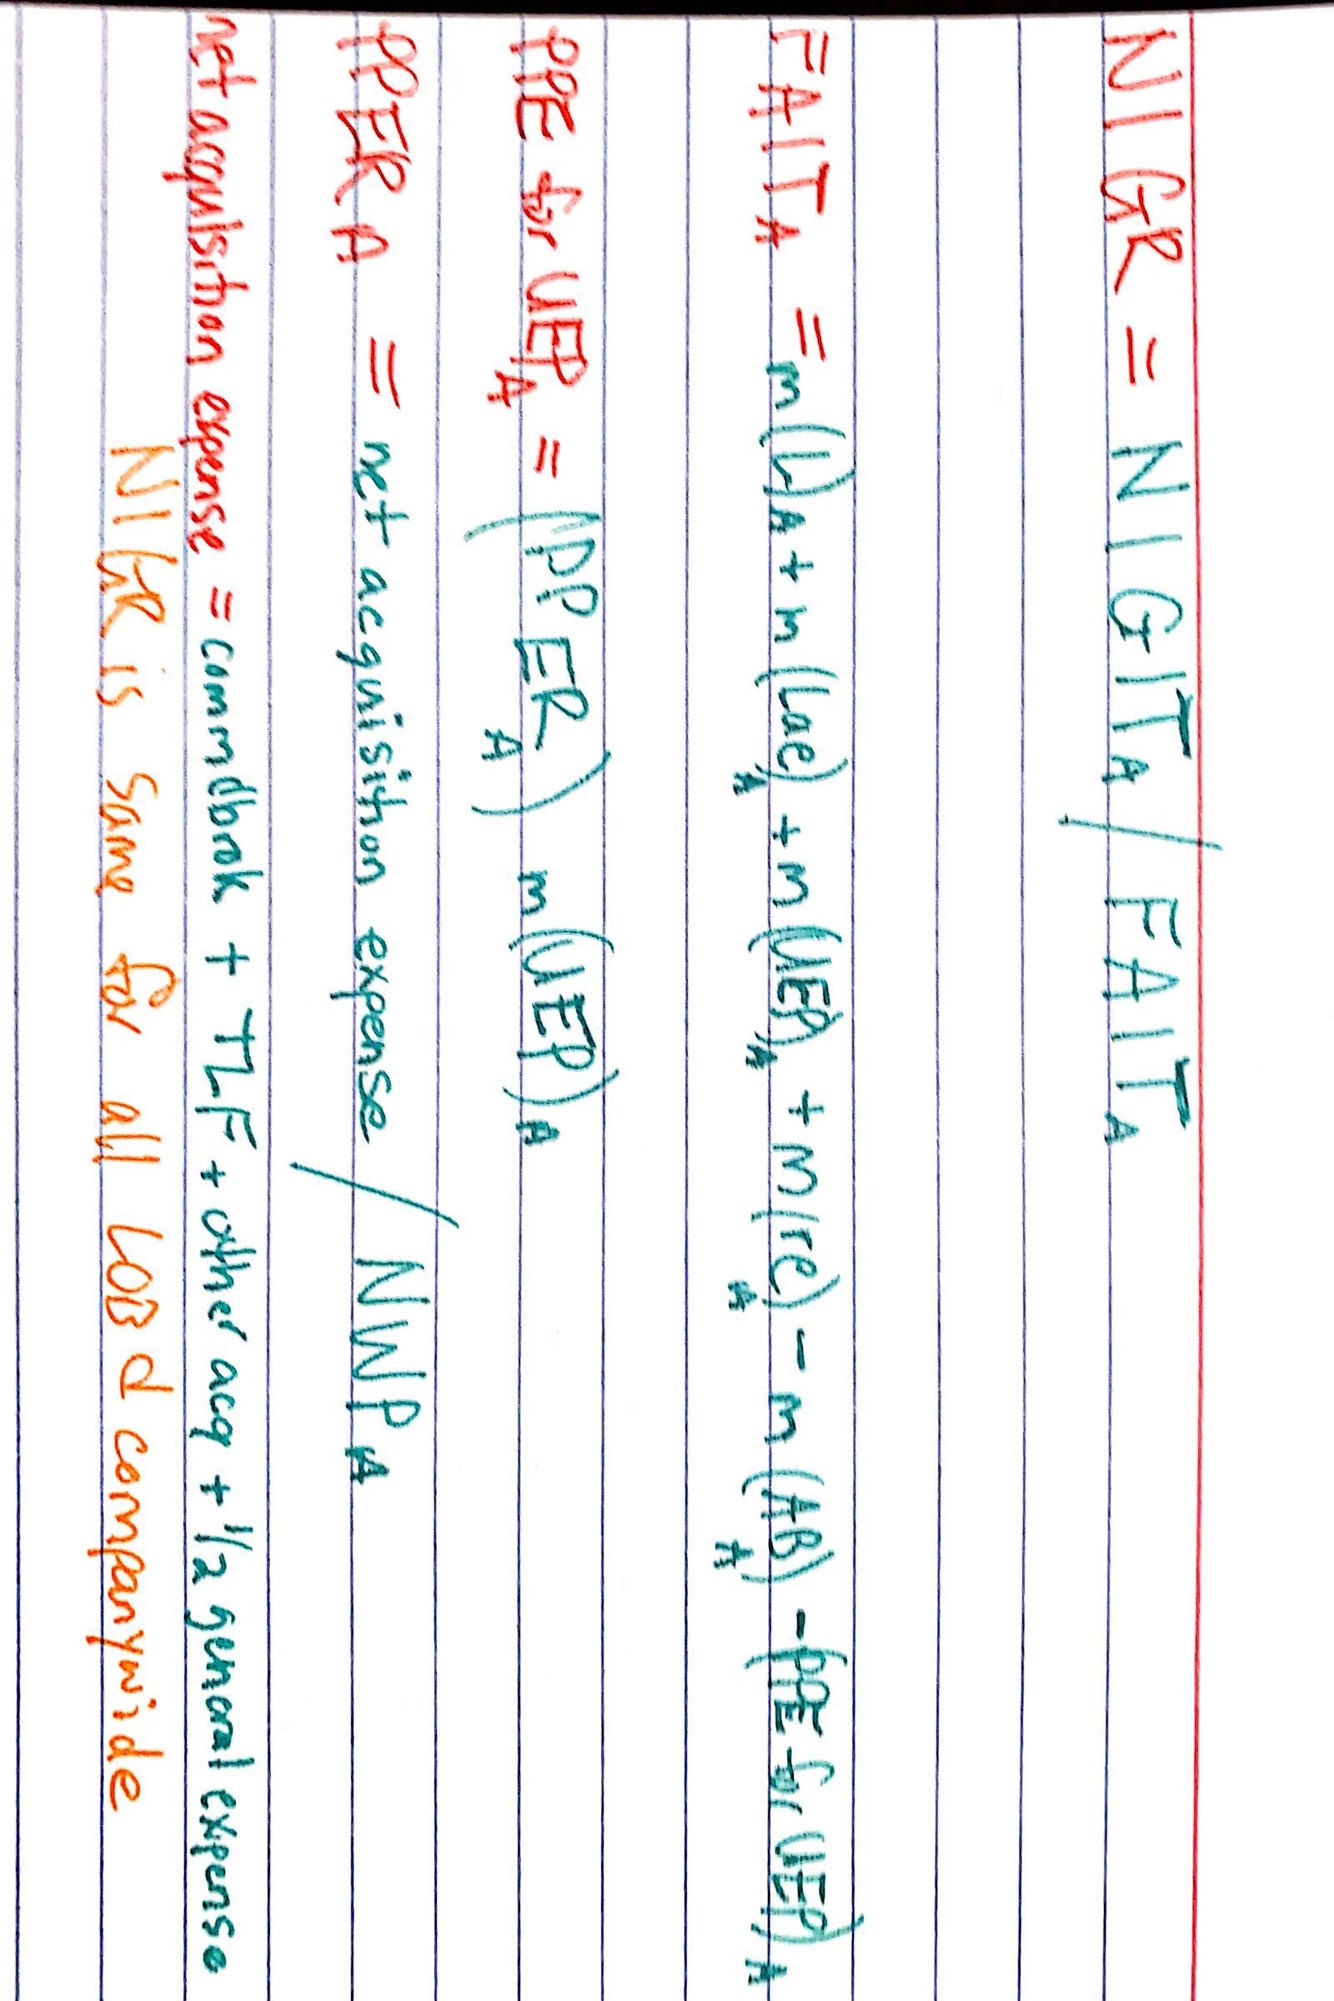 NIGR = NIGIT A / FAIT A
FAIT A = m(L) A + m(Lae) A + m(UEP) A + m(re) A - m(AB) A - (PPE for UEP) A
PPE for UEP A = (PPER A) m(UEP) A
PPER A = net acquisition expense / NWP A
net acquisition expense = comm&brok + TLF + other acq + 1/2 general expense
NIGR is same for all LOB & companywide